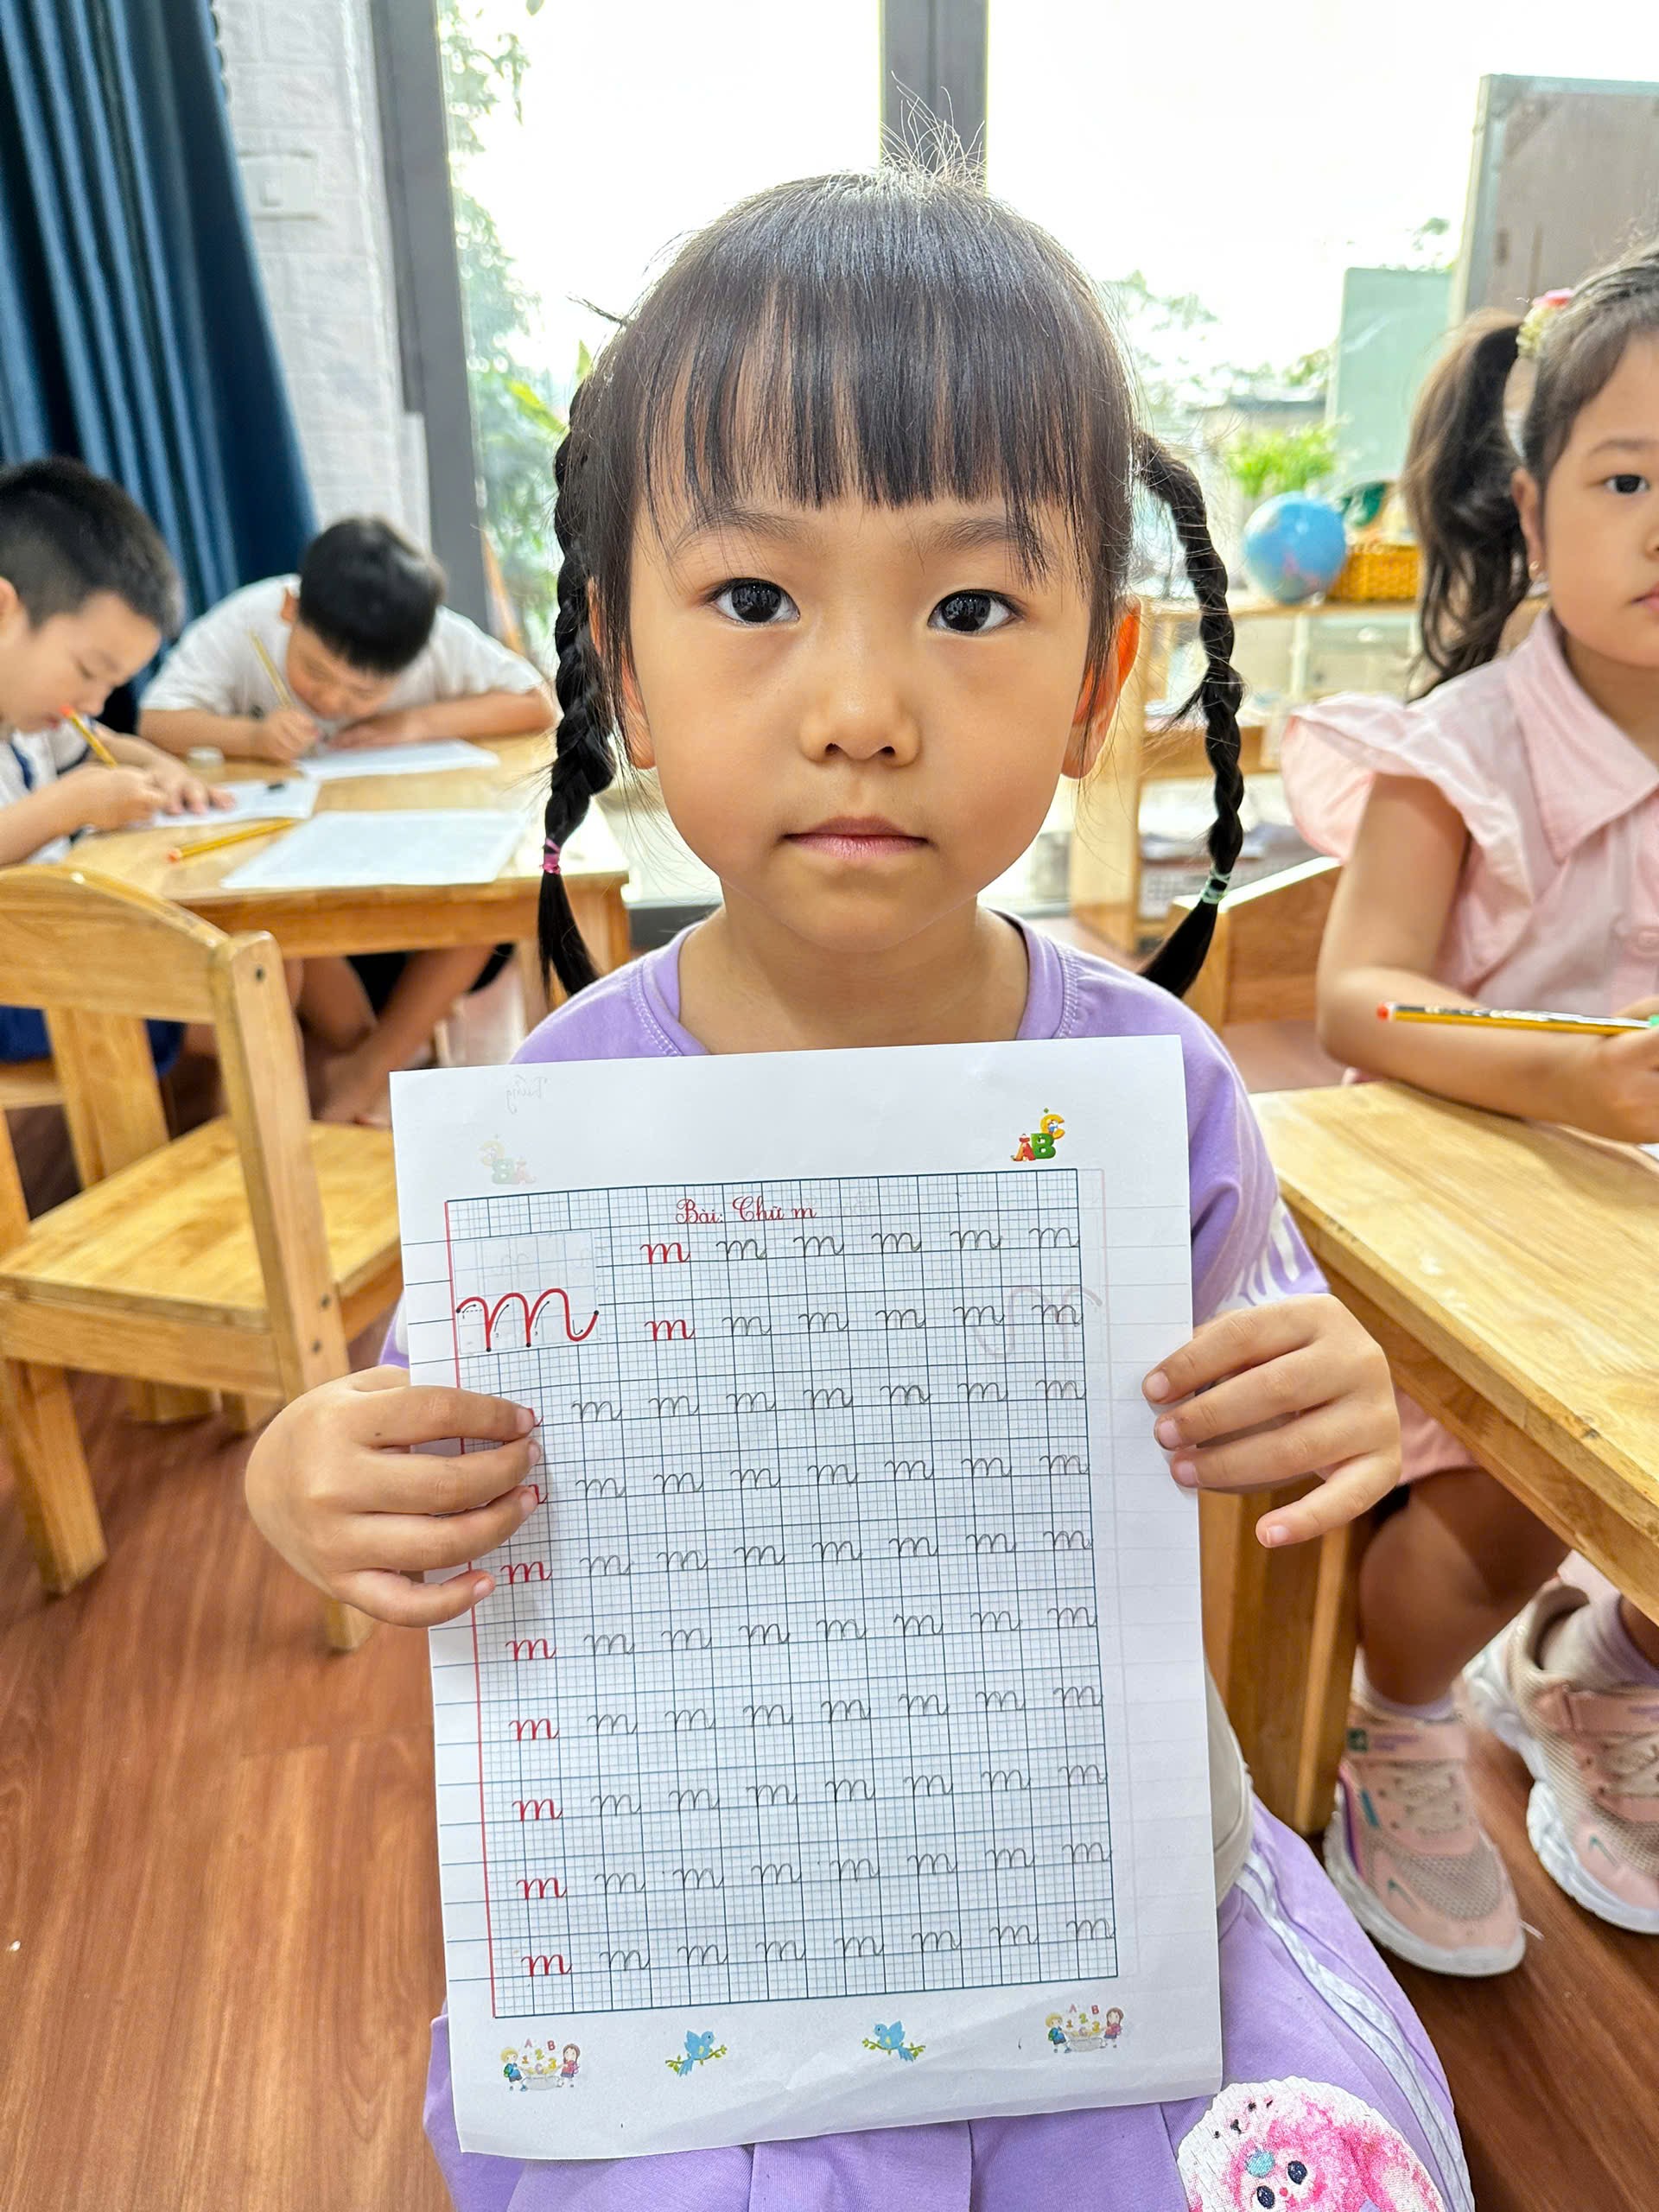 ABC
Bài: Chữ m
m m m m m m
m
m m m m m m
m m m m m m m
m m m m m m m
m m m m m m m m
m m m m m m m m
m m m m m m m m
m m m m m m m m
m m m m m m m m
m m m m m m m m